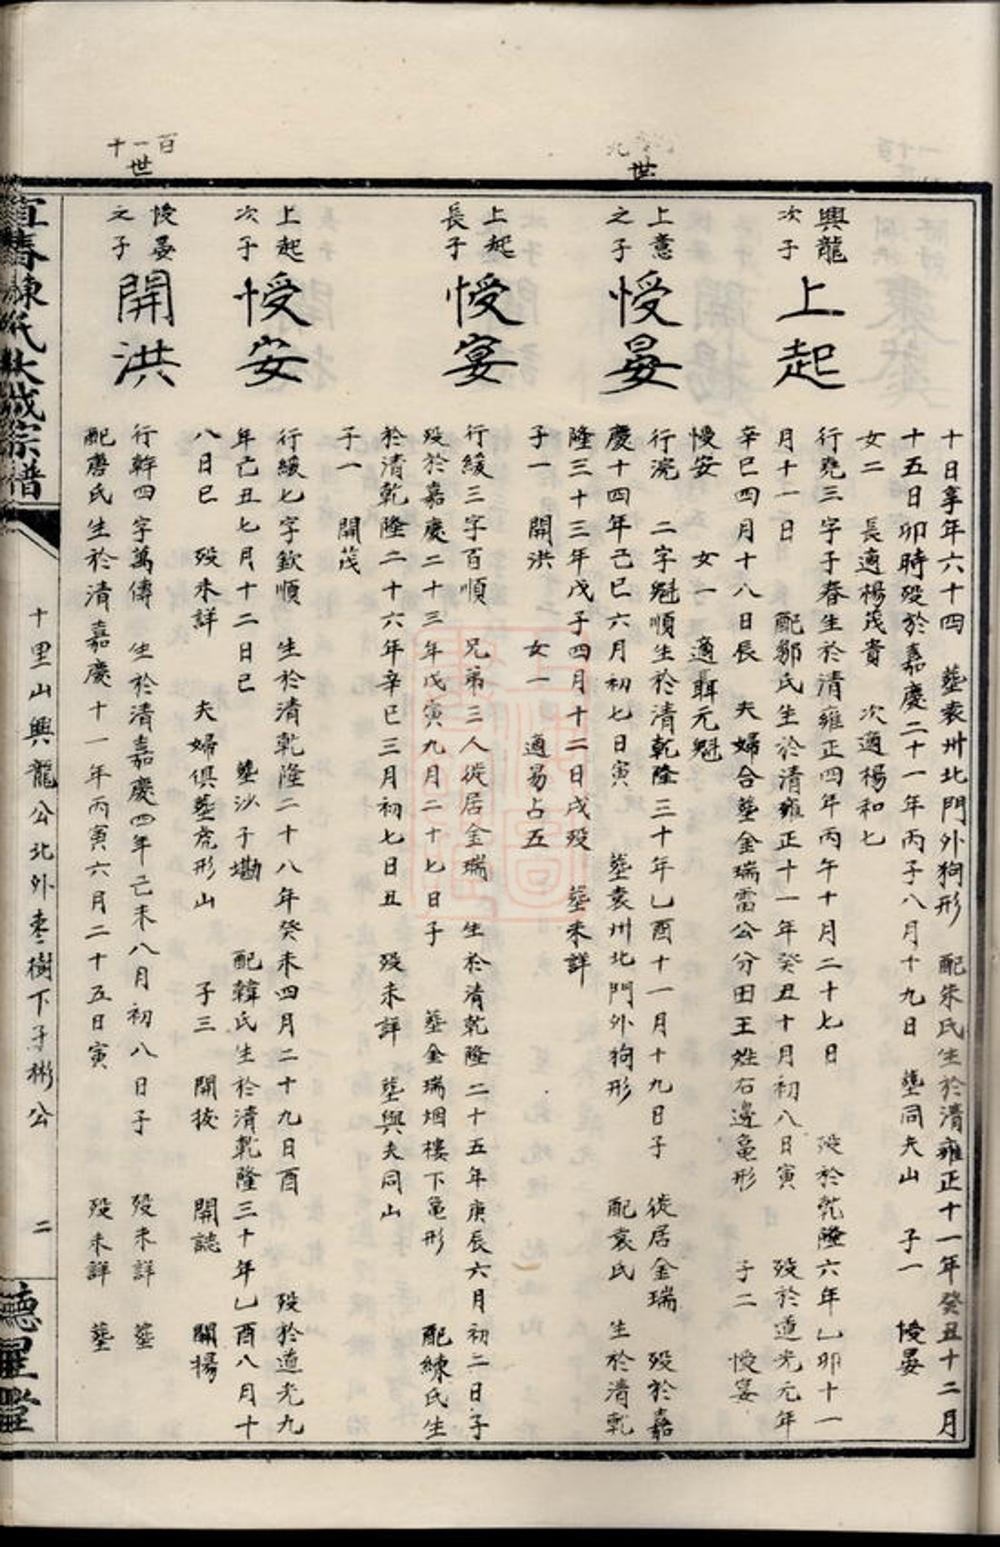 十日享年六十四　塟袁州北門外狗形　配朱氏生於清雍正十一年癸丑十二月
十五日卯時殁於嘉慶二十一年丙子八月十九日　塟同夫山　子一　㥅晏
女二　長適楊茂貴　次適楊和七
興龍
次子
上起
行堯三字子春生於清雍正四年丙午十月二十七日　殁於乾隆六年乙卯十一
月十一日　配鄒氏生於清雍正十一年癸丑十月初八日寅　殁於道光元年
辛巳四月十八日辰　夫婦合塟金瑞雷公分田王姓石邊龜形　子二　㥅宴
㥅安　女一　適聶元魁
世
上意
之子
㥅晏
行浣　二字魁順生於清乾隆三十年乙酉十一月十九日子　徙居金瑞　殁於嘉
慶十四年己巳六月初七日寅　塟袁州北門外狗形　配袁氏　生於清乾
隆三十三年戊子四月十二日戌殁　塟未詳
子一　開洪　女一　適易占五
上起
長子
㥅宴
行緩三字百順　兄弟三人徙居金瑞　生於清乾隆二十五年庚辰六月初二日子
殁於嘉慶二十三年戊寅九月二十七日子　塟金瑞烟樓下龜形　配練氏生
於清乾隆二十六年辛巳三月初七日丑　殁未詳　塟與夫同山
子一　開茂
上起
次子
㥅安
行緩七字欽順　生於清乾隆二十八年癸未四月二十九日酉　殁於道光九
年己丑七月十二日巳　塟沙子塘　配韓氏生於清乾隆三十年乙酉八月十
八日巳　殁未詳　夫婦俱塟虎形山　子三　開拔　開誌　開揚
百一十
世
㥅晏
之子
開洪
行幹四字萬傳　生於清嘉慶四年己未八月初八日子　殁未詳　塟
配唐氏生於清嘉慶十一年丙寅六月二十五日寅　殁未詳　塟
宜春練氏大成宗譜
十里山興龍公北外枣樹下子彬公
二
聽星堂